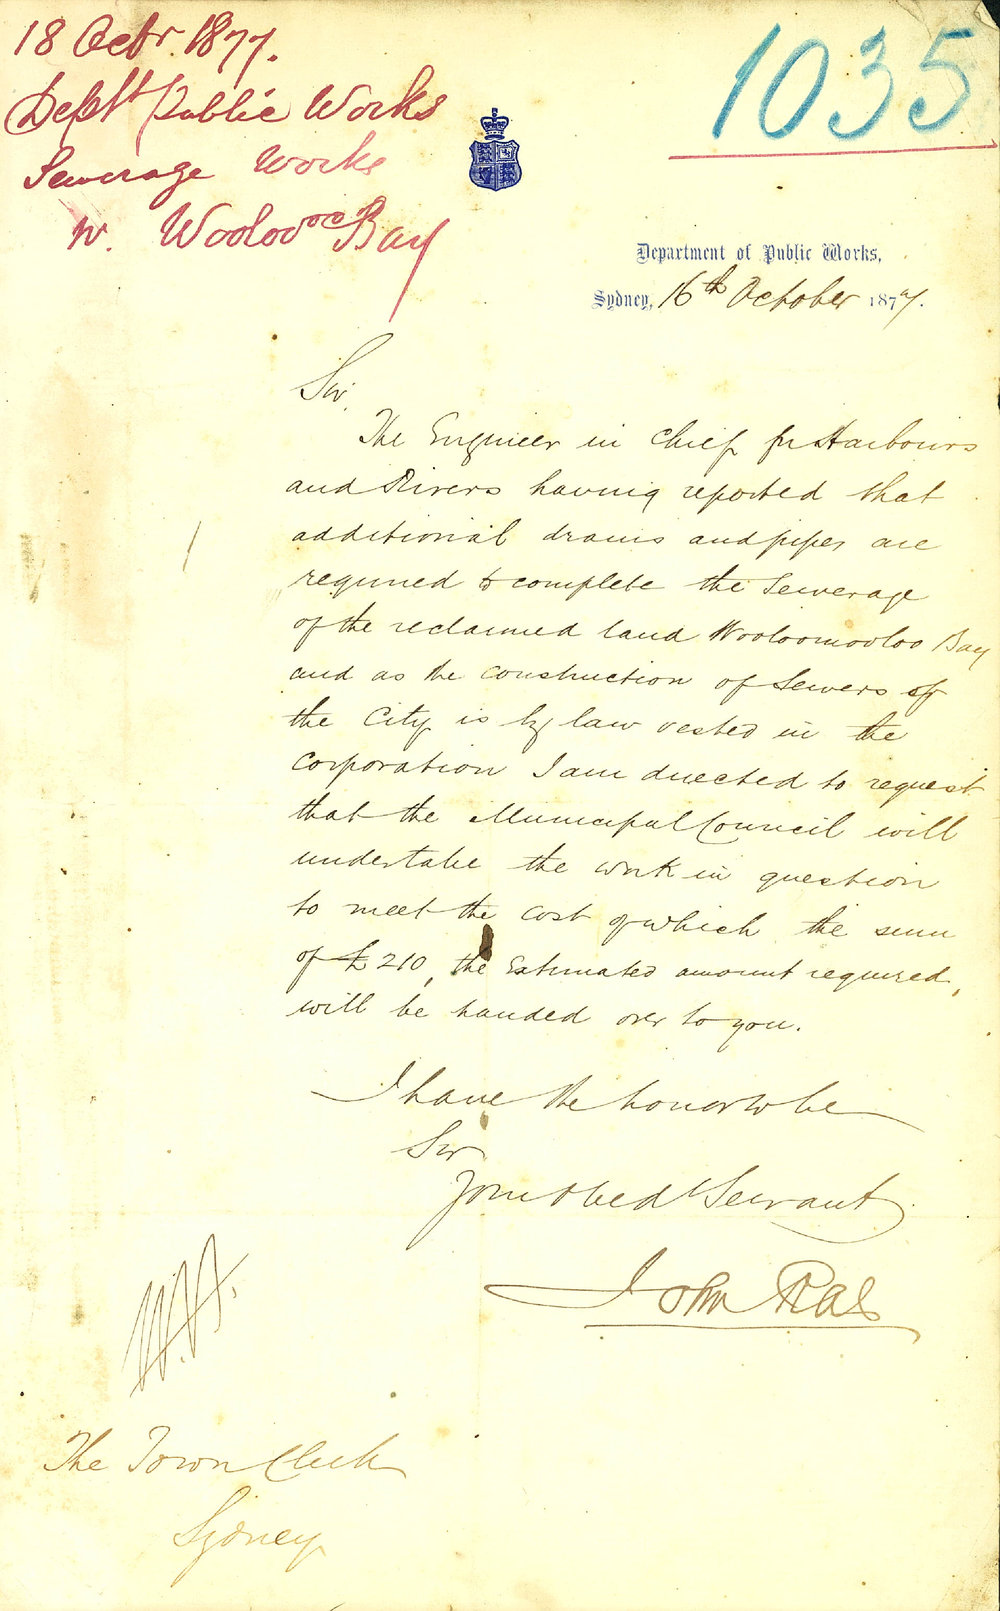 18 Octr. 1877.
Deptt Public Works
Sewerage Works
W. Wooloo Bay
1035
Department of Public Works,
Sydney, 16th October 1877.
Sir,
The Engineer in Chief for Harbours
and Rivers having reported that
additional drains and pipes are
required to complete the Sewerage
of the reclaimed land Wooloomooloo Bay
and as the construction of Sewers of
the City is by law vested in the
Corporation I am directed to request
that the Municipal Council will
undertake the work in question
to meet the cost of which the sum
of £210, the Estimated amount required,
will be handed over to you.
I have the honor to be
Sir
Your Obedt Servant
John Rae
The Town Clerk
Sydney